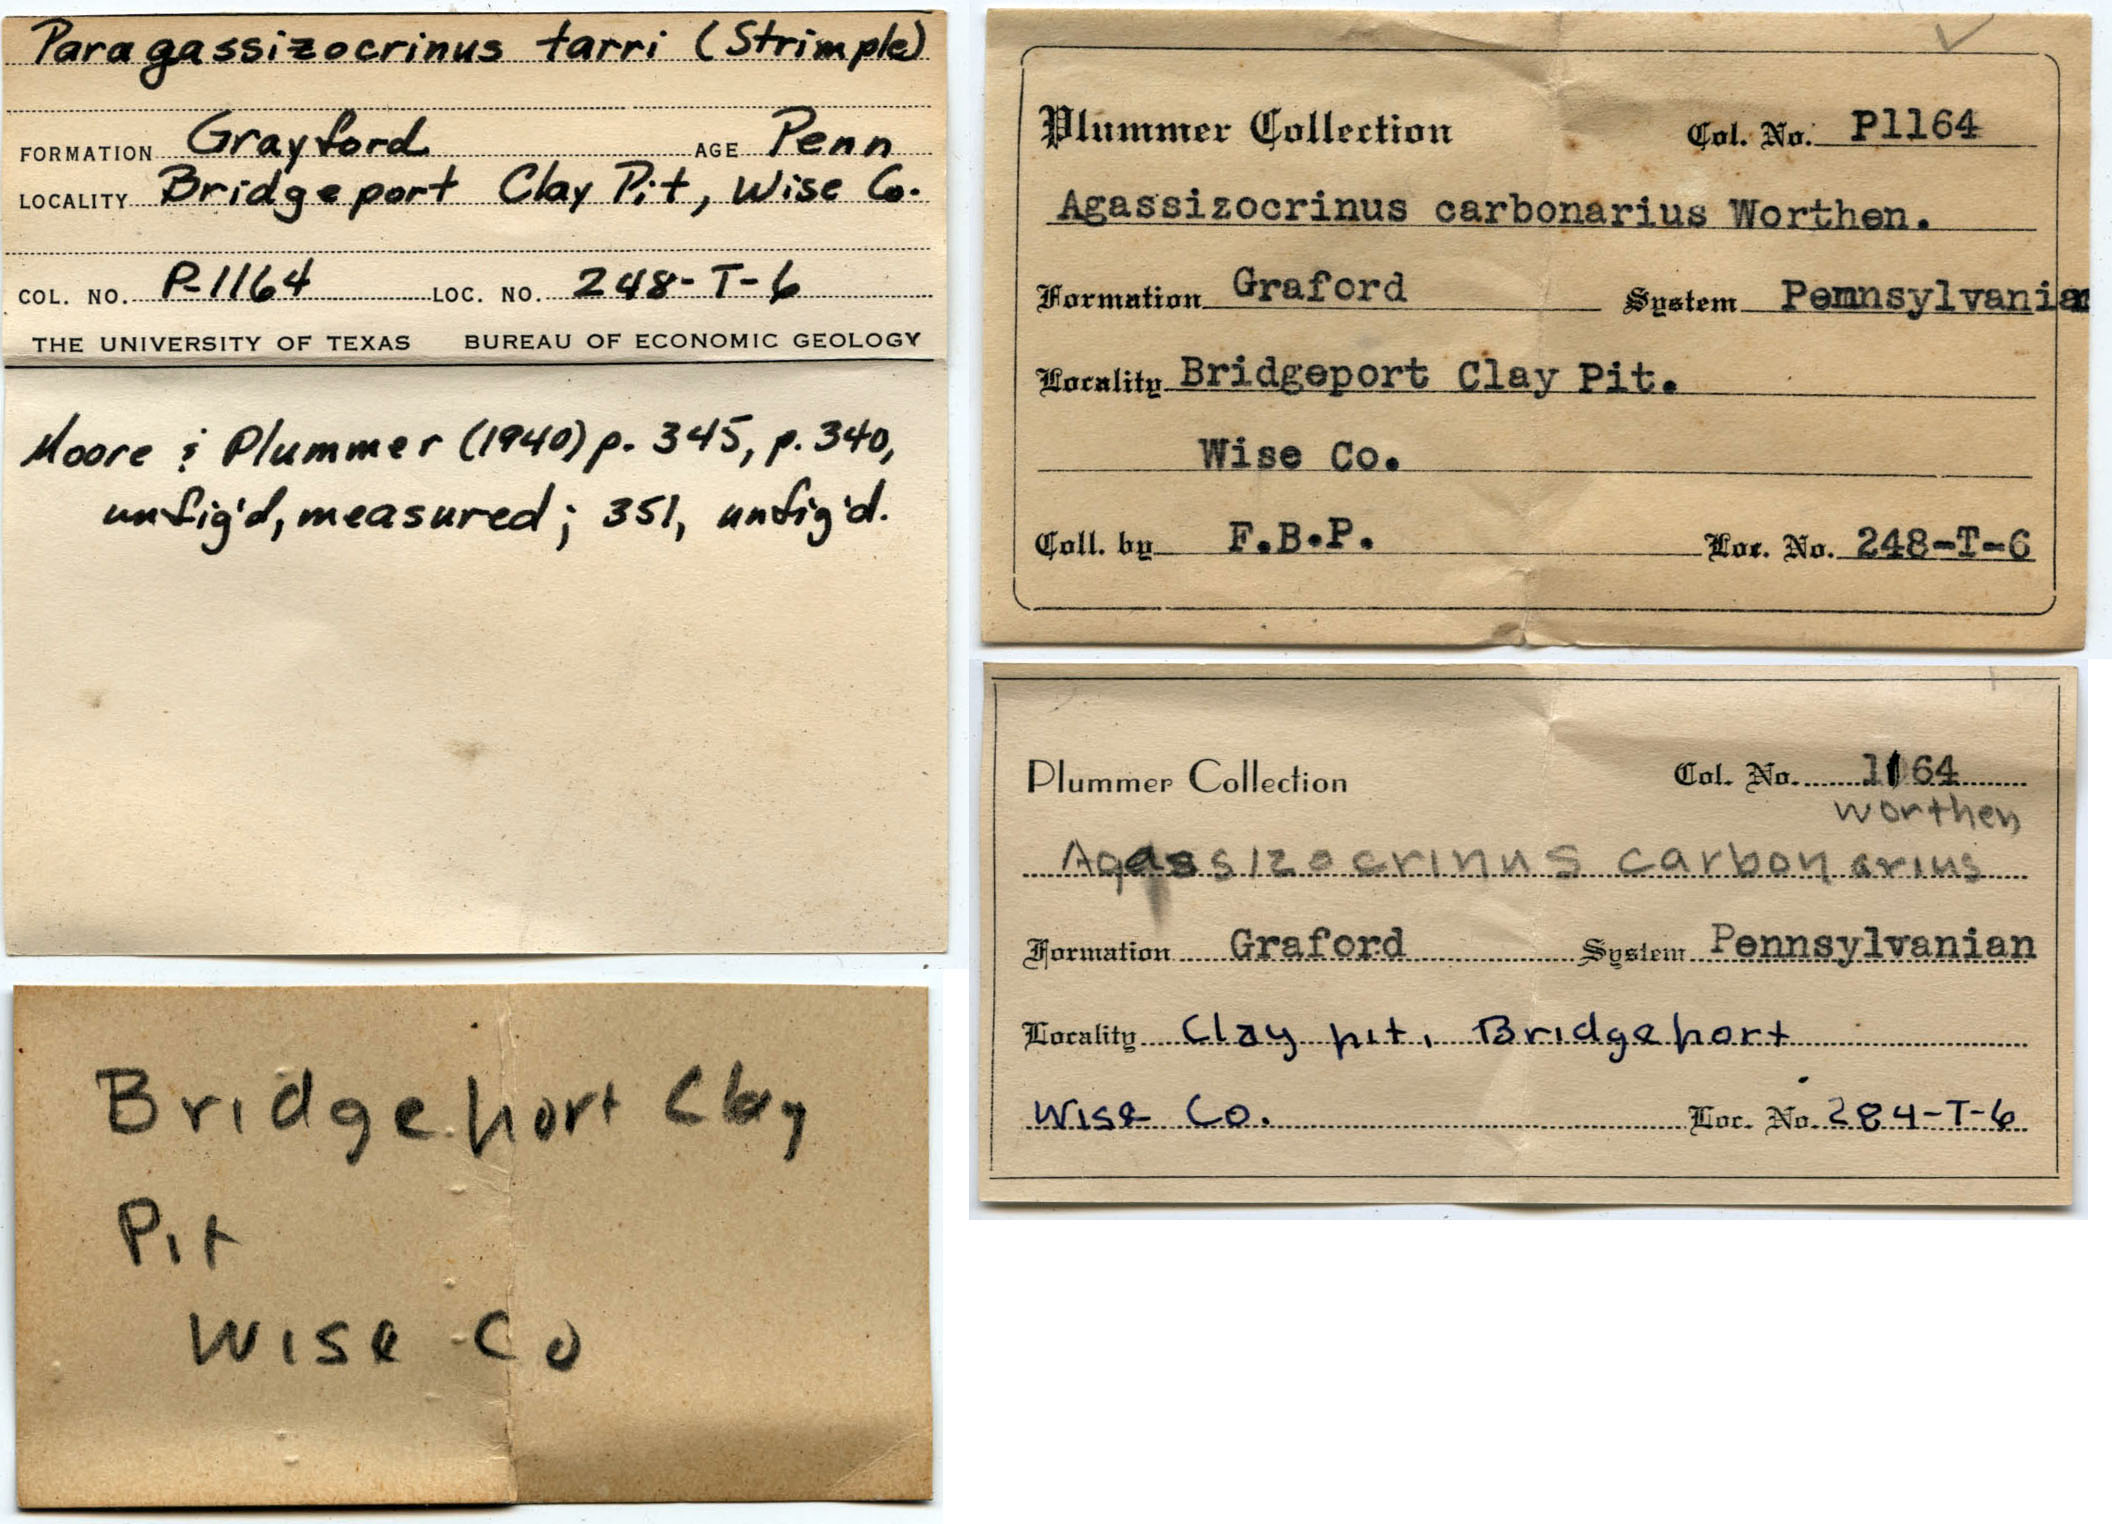 Paragassizocrinus tarri (Strimple)
FORMATION Grayford AGE Penn
LOCALITY Bridgeport Clay Pit, Wise Co.
COL. NO. P-1164 LOC. NO. 248-T-6
THE UNIVERSITY OF TEXAS BUREAU OF ECONOMIC GEOLOGY
Moore & Plummer (1940) p. 345, p. 340,
unfig'd, measured; 351, unfig'd.
Plummer Collection Col. No. P1164
Agassizocrinus carbonarius Worthen.
Formation Graford System Pennsylvanian
Locality Bridgeport Clay Pit.
Wise Co.
Coll. by F.B.P. Loc. No. 248-T-6
Plummer Collection Col. No. 1164
Worthen
Agassizocrinus carbonarius
Formation Graford System Pennsylvanian
Locality Clay pit, Bridgeport
Wise Co. Loc. No. 284-T-6
Bridgeport Clay
Pit
Wise Co